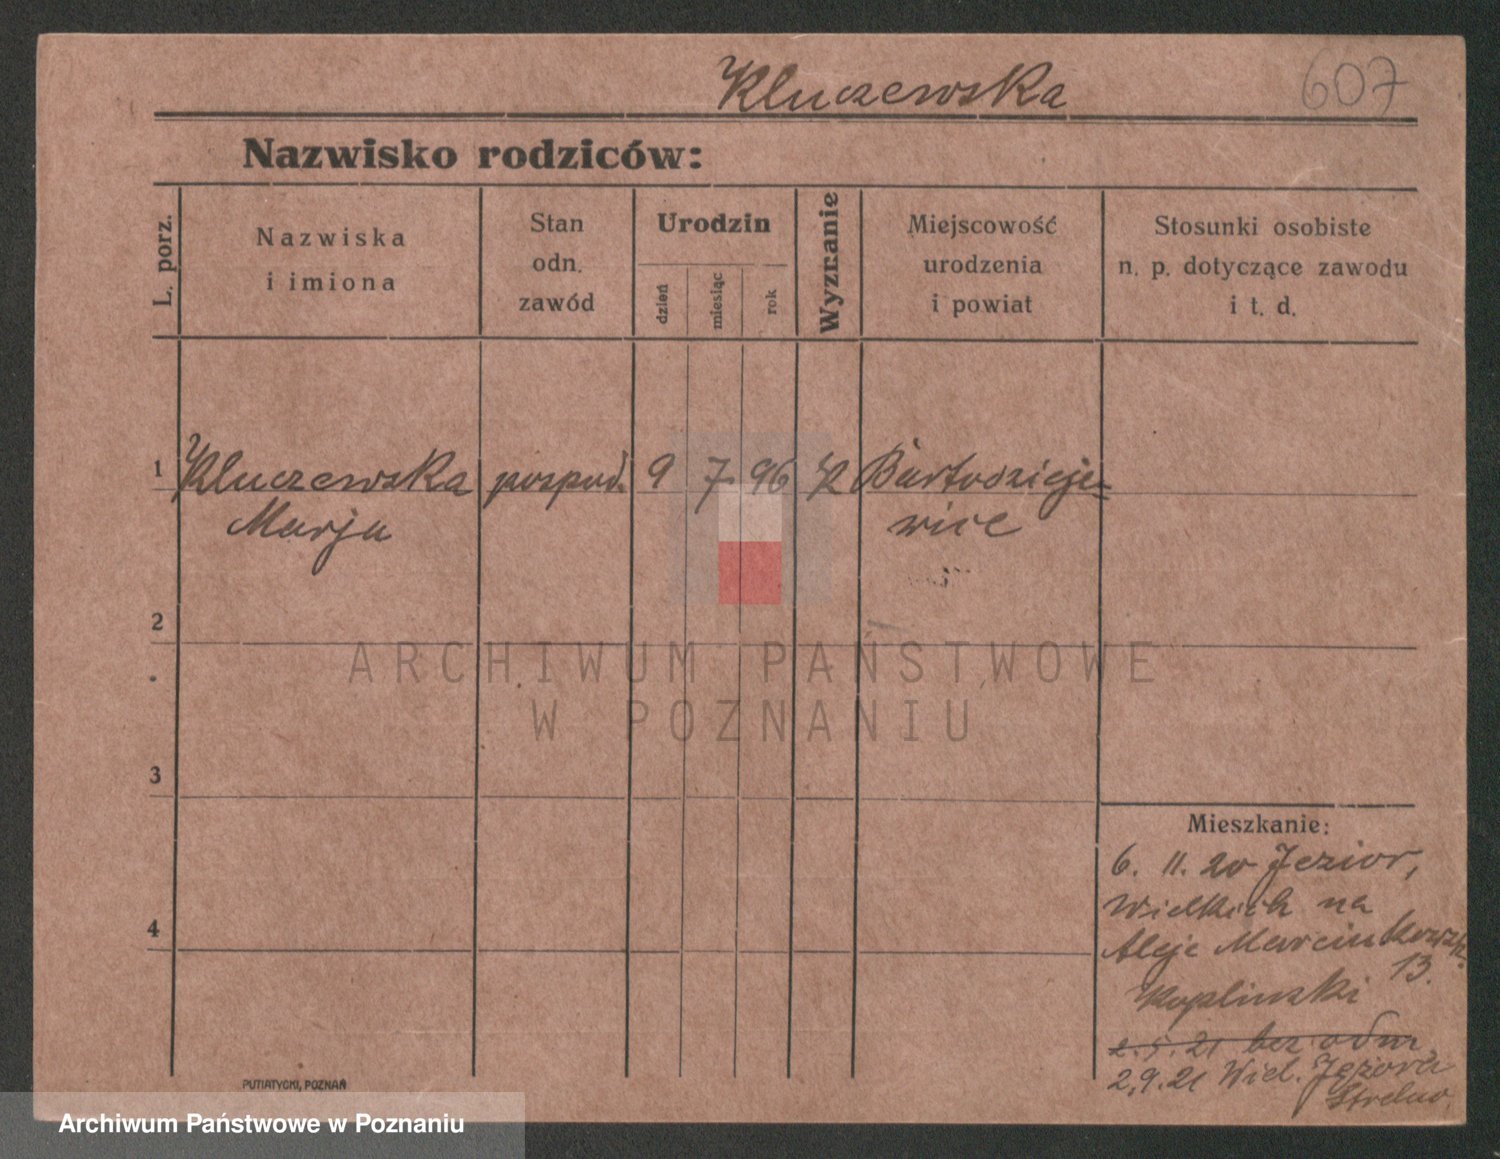 Kluczewska 607
Nazwisko rodziców:
L. porz.
Nazwiska
i imiona
Stan
odn.
zawód
Urodzin
dzień
miesiąc
rok
Wyznanie
Miejscowość
urodzenia
i powiat
Stosunki osobiste
n. p. dotyczące zawodu
i t. d.
1 Kluczewska gospod. 9 7 96 Bartodzieje-
Marja wice
2
3
4
Mieszkanie:
6. 11. 20 Jezior,
Wielkich na
Aleje Marcinkowsk.
13.
Koplinski
2. 5. 21 bez odm.
2.9.21 Wiel. Jeziora
Strelno.
PUTIATYCKI, POZNAŃ
ARCHIWUM PAŃSTWOWE
W POZNANIU
Archiwum Państwowe w Poznaniu